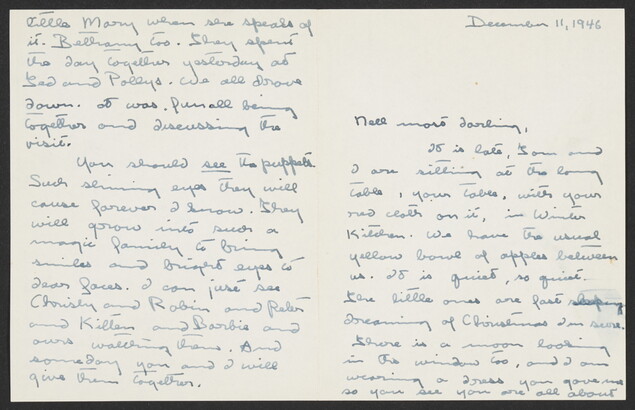 little Mary when she speaks of
it. Bethany too. They spent
the day together yesterday at
Ted and Pollys. We all drove
down. It was fun all being
together and discussing the
visit.
You should see the puppets.
Such shining eyes they will
cause forever I know. They
will grow into such a
magic family to bring
smiles and bright eyes to
dear faces. I can just see
Christy and Robin and Peter
and Kitten and Barbie and
ours watching them. And
someday you and I will
give them together.
December 11, 1946
Nell most darling,
It is late, Tom and
I are sitting at the long
table, your table, with your
red cloth on it, in Winter
Kitchen. We have the usual
yellow bowl of apples between
us. It is quiet, so quiet.
The little ones are fast sleeping
dreaming of Christmas I'm sure.
There is a moon looking
in the window too, and I am
wearing a dress you gave me
so you see you are all about